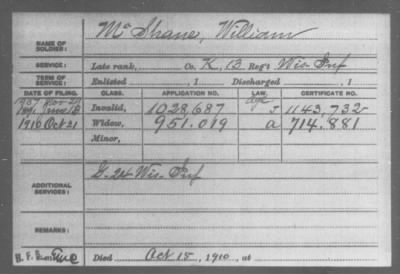 McShane, William
NAME OF SOLDIER:
SERVICE: Late rank, Co. K, 13 Reg't Wis. Inf
TERM OF SERVICE: Enlisted , 1 Discharged , 1
DATE OF FILING. CLASS. APPLICATION NO. LAW. CERTIFICATE NO.
1891 June 18 Invalid, 1028,687 J 1143,732
1910 Oct 21 Widow, 951.019 a 714.881
Minor,
ADDITIONAL SERVICES: G. 24 Wis. Inf
REMARKS:
Died Oct 15, 1910, at